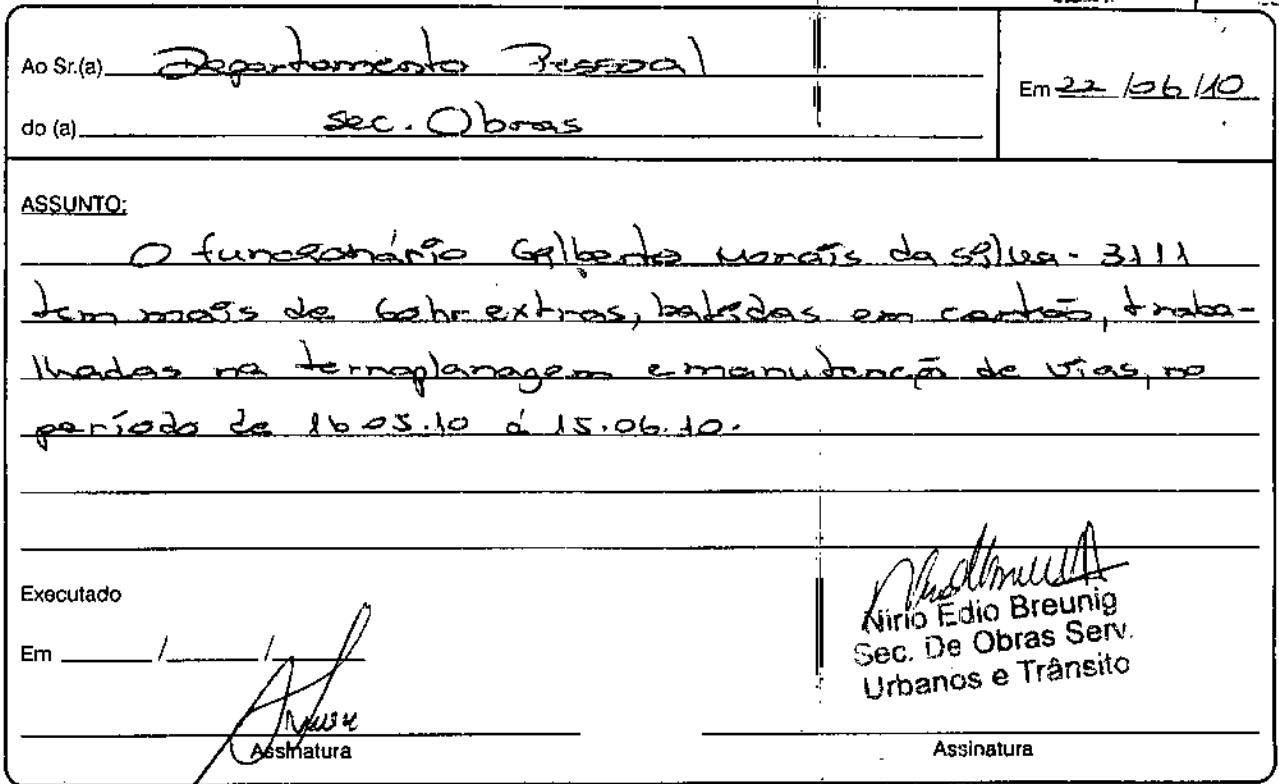 Ao Sr.(a) Departamento Pessoal
Em 22/06/10
do (a) Sec. Obras
ASSUNTO:
O funcionário Gilberto Morais da Silva - 3111
tem mais de 60hr extras, batidas em cartão, traba-
lhadas na terraplanagem e manutenção de vias, no
período de 16.05.10 á 15.06.10.
Executado
Em / /
Nirio Edio Breunig
Sec. De Obras Serv.
Urbanos e Trânsito
Assinatura
Assinatura